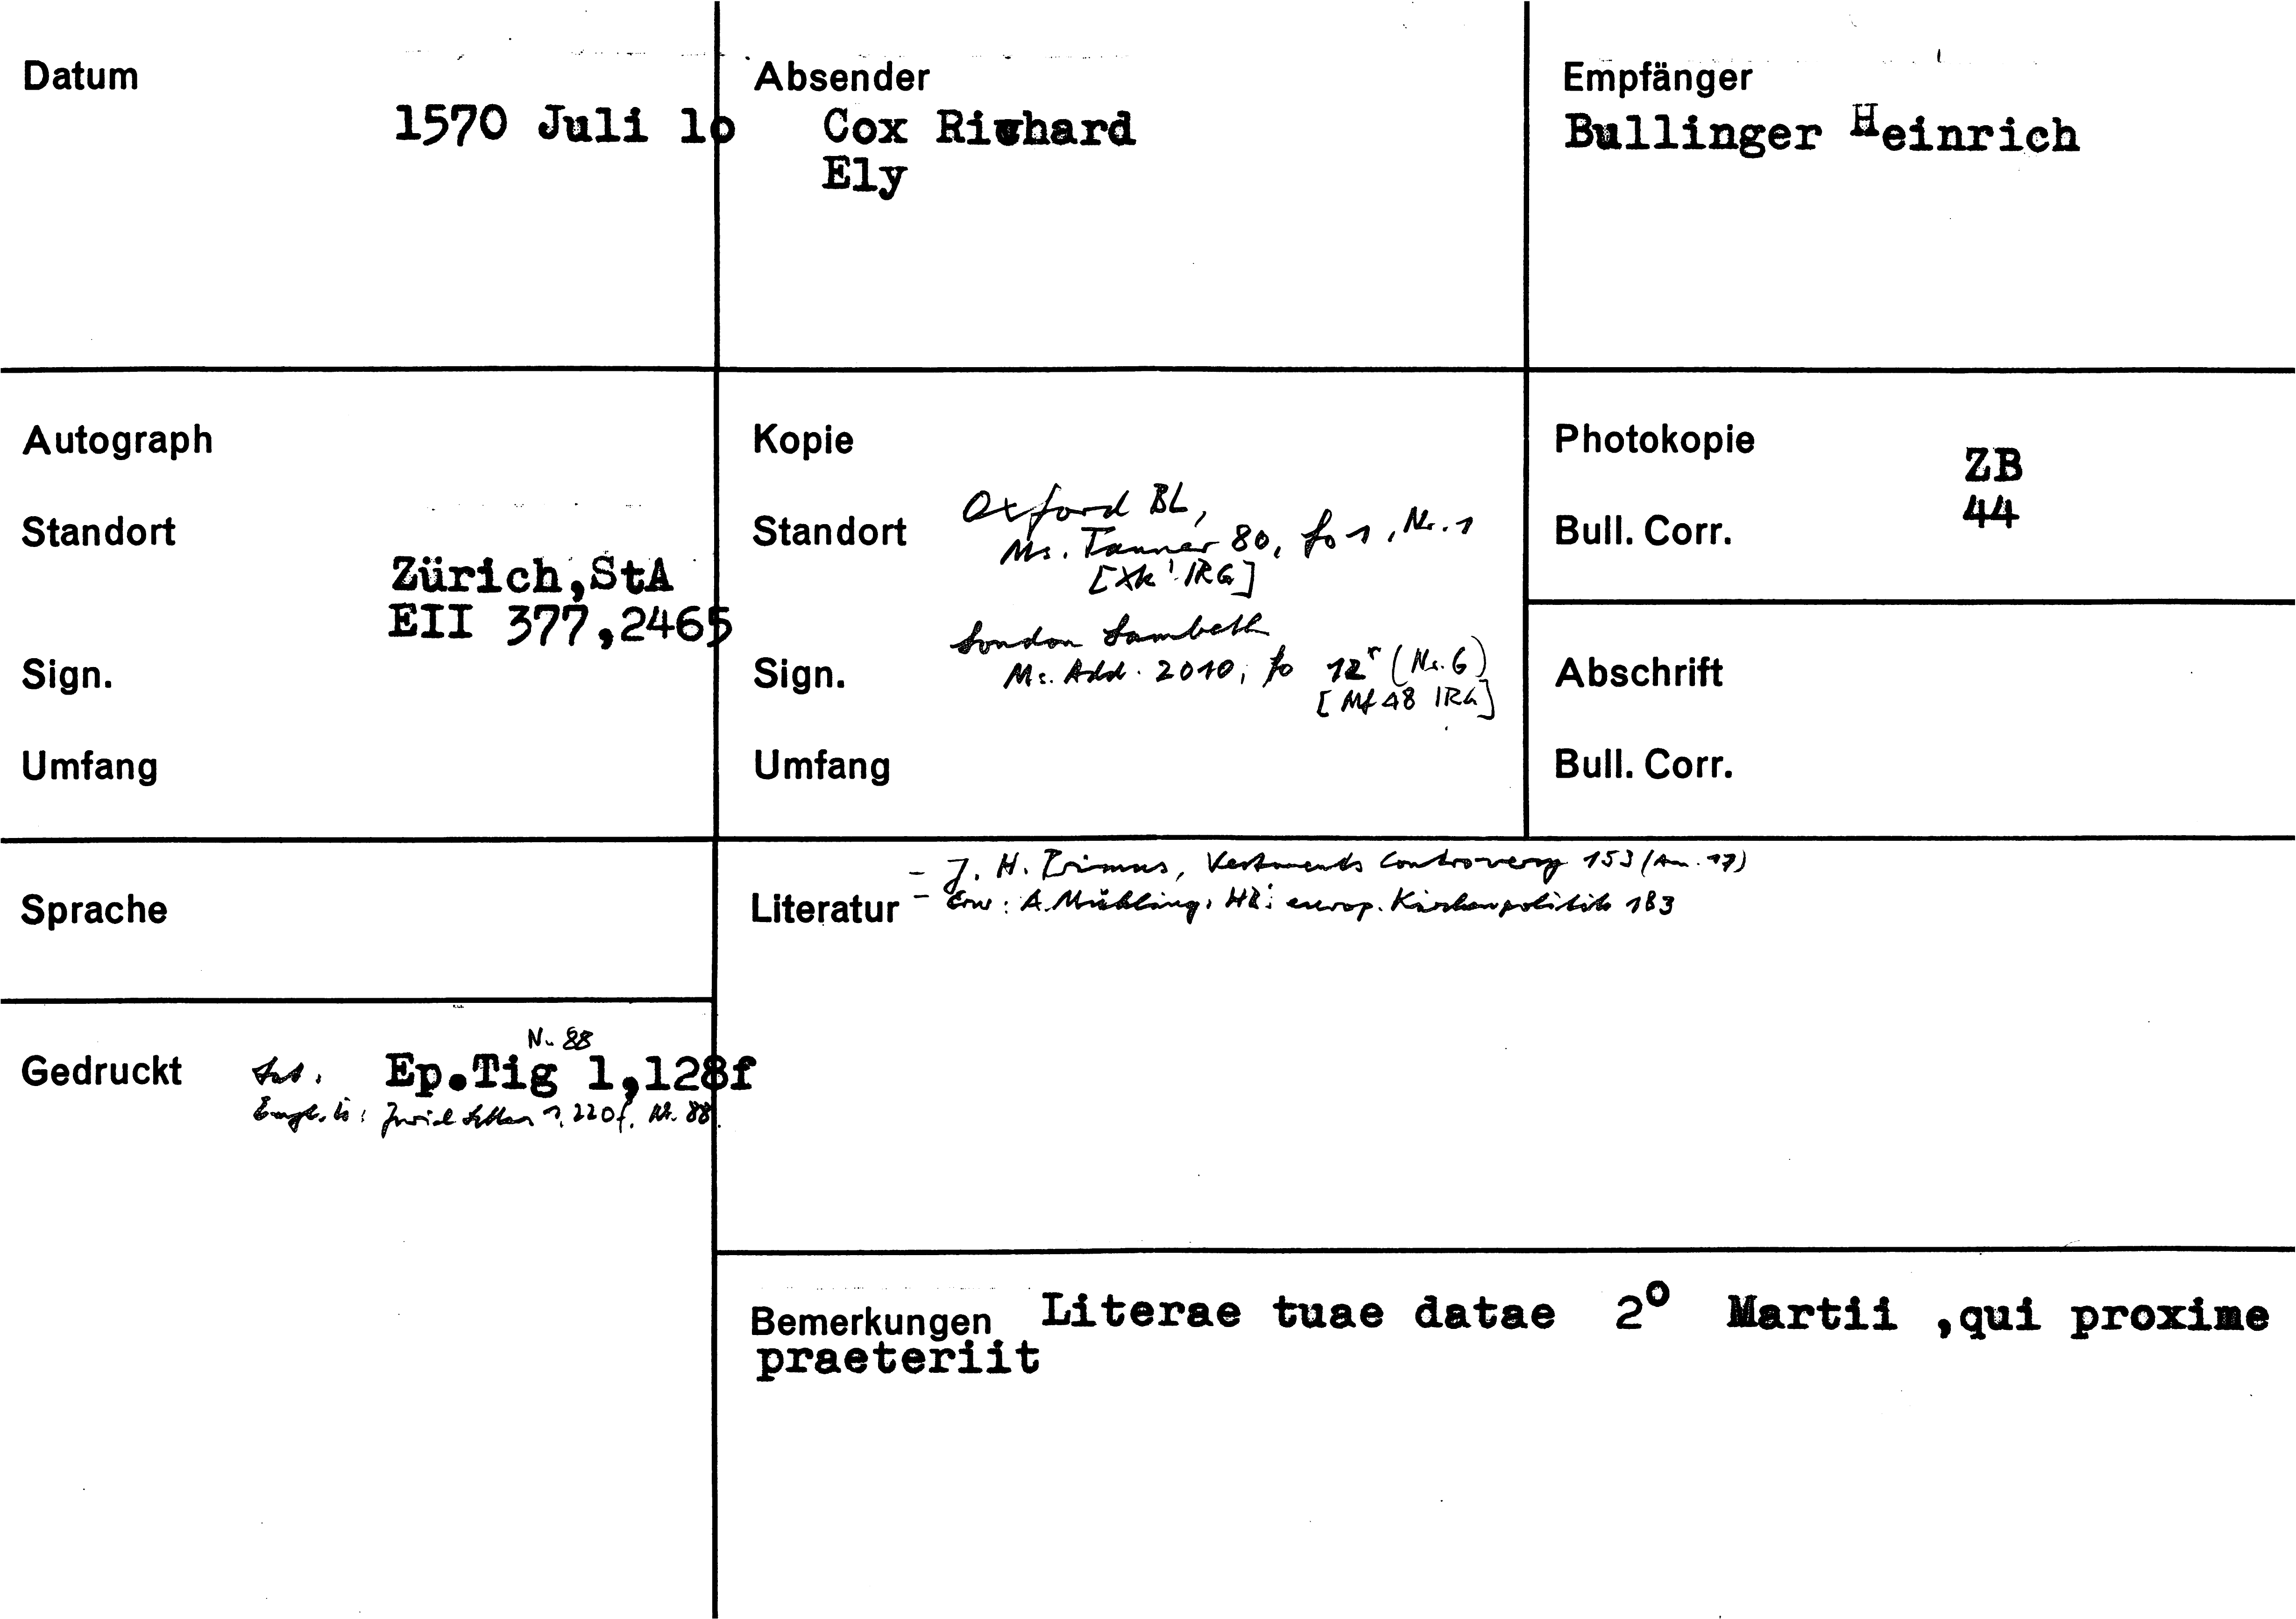 Datum
1570 Juli 10
Absender
Cox Richard
Ely
Empfänger
Bullinger Heinrich
Autograph
Standort
Zürich,StA
EII 377,2465
Sign.
Umfang
Kopie
Standort
Oxford BL,
Ms. Tanner 80, fo 1, Nr. 1
[Xk IRG]
London Lambeth
Sign.
Ms. Add. 2010, fo 12r (Nr. 6)
[Mf 48 IRG]
Umfang
Photokopie
ZB
Bull. Corr.
44
Abschrift
Bull. Corr.
Sprache
Literatur
- J. H. Primus, Vestments Controversy 153 (Am. 17)
- Erw: A. Mühling, HB's europ. Kirchenpolitik 183
Gedruckt
Nr. 88
Lat. Ep.Tig 1,128f
Engl. in: Zurich Letters 1, 220f, Nr. 88
Bemerkungen Literae tuae datae 2º Martii ,qui proxime
praeteriit